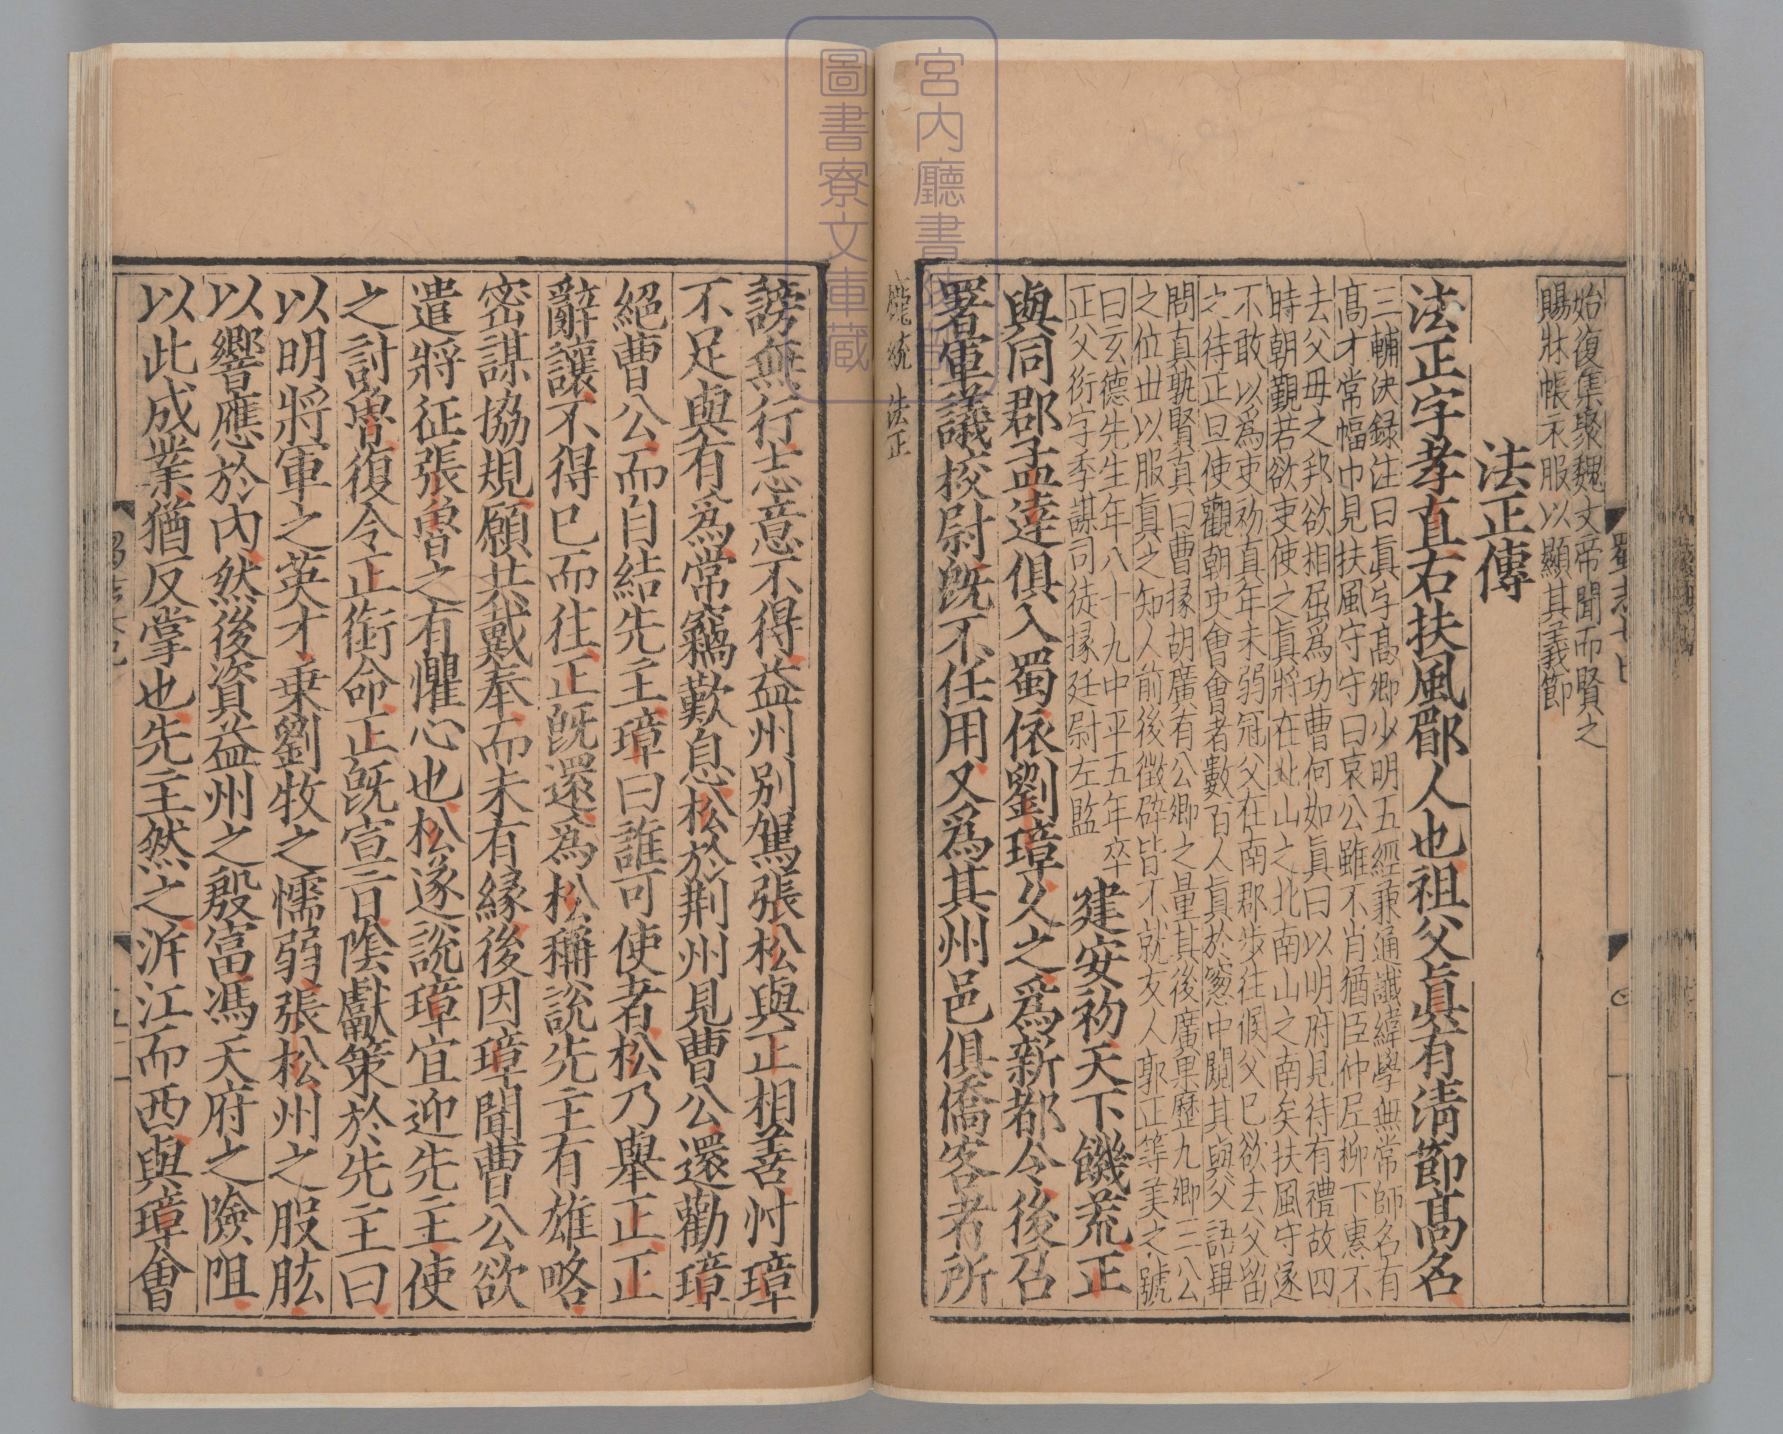 始復集聚魏文帝聞而賢之
賜牀帳衣服以顯其義節
法正傳
法正字孝直右扶風郿人也祖父眞有清節高名
三輔決録注曰眞字髙卿少明五經兼通讖緯學無常師名有
髙才常幅巾見扶風守守曰哀公雖不肖猶臣仲尼柳下惠不
去父母之邦欲相屈爲功曹何如眞曰以明府見待有禮故四
時朝覲若欲吏使之眞將在北山之北南山之南矣扶風守遂
不敢以爲吏初真年未弱冠父在南郡歩往候父已欲去父留
之待正旦使觀朝吏會會者數百人眞於窻中闚其與父語畢
問真孰賢真曰曹掾胡廣有公卿之量其後廣果歷九卿三公
之位世以服眞之知人前後徵辟皆不就友人郭正等美之號
曰玄德先生年八十九中平五年卒
正父衍字季謀司徒掾廷尉左監
建安初天下饑荒正
與同郡孟達俱入蜀依劉璋久之爲新都令後召
署軍議校尉旣不任用又爲其州邑俱僑客者所
龐統 法正
謗無行志意不得益州别駕張松與正相善忖璋
不足與有爲常竊歎息松於荆州見曹公還勸璋
絕曹公而自結先主璋曰誰可使者松乃舉正正
辭讓不得已而往正旣還爲松稱說先主有雄略
密謀協規願共戴奉而未有緣後因璋聞曹公欲
遣將征張魯之有懼心也松遂說璋宜迎先主使
之討魯復令正銜命正旣宣㫖陰獻策於先主曰
以明將軍之英才乗劉牧之懦弱張松州之股肱
以響應於內然後資益州之殷富馮天府之險阻
以此成業猶反掌也先主然之泝江而西與璋會
宮内廳書陵部
圖書寮文庫藏